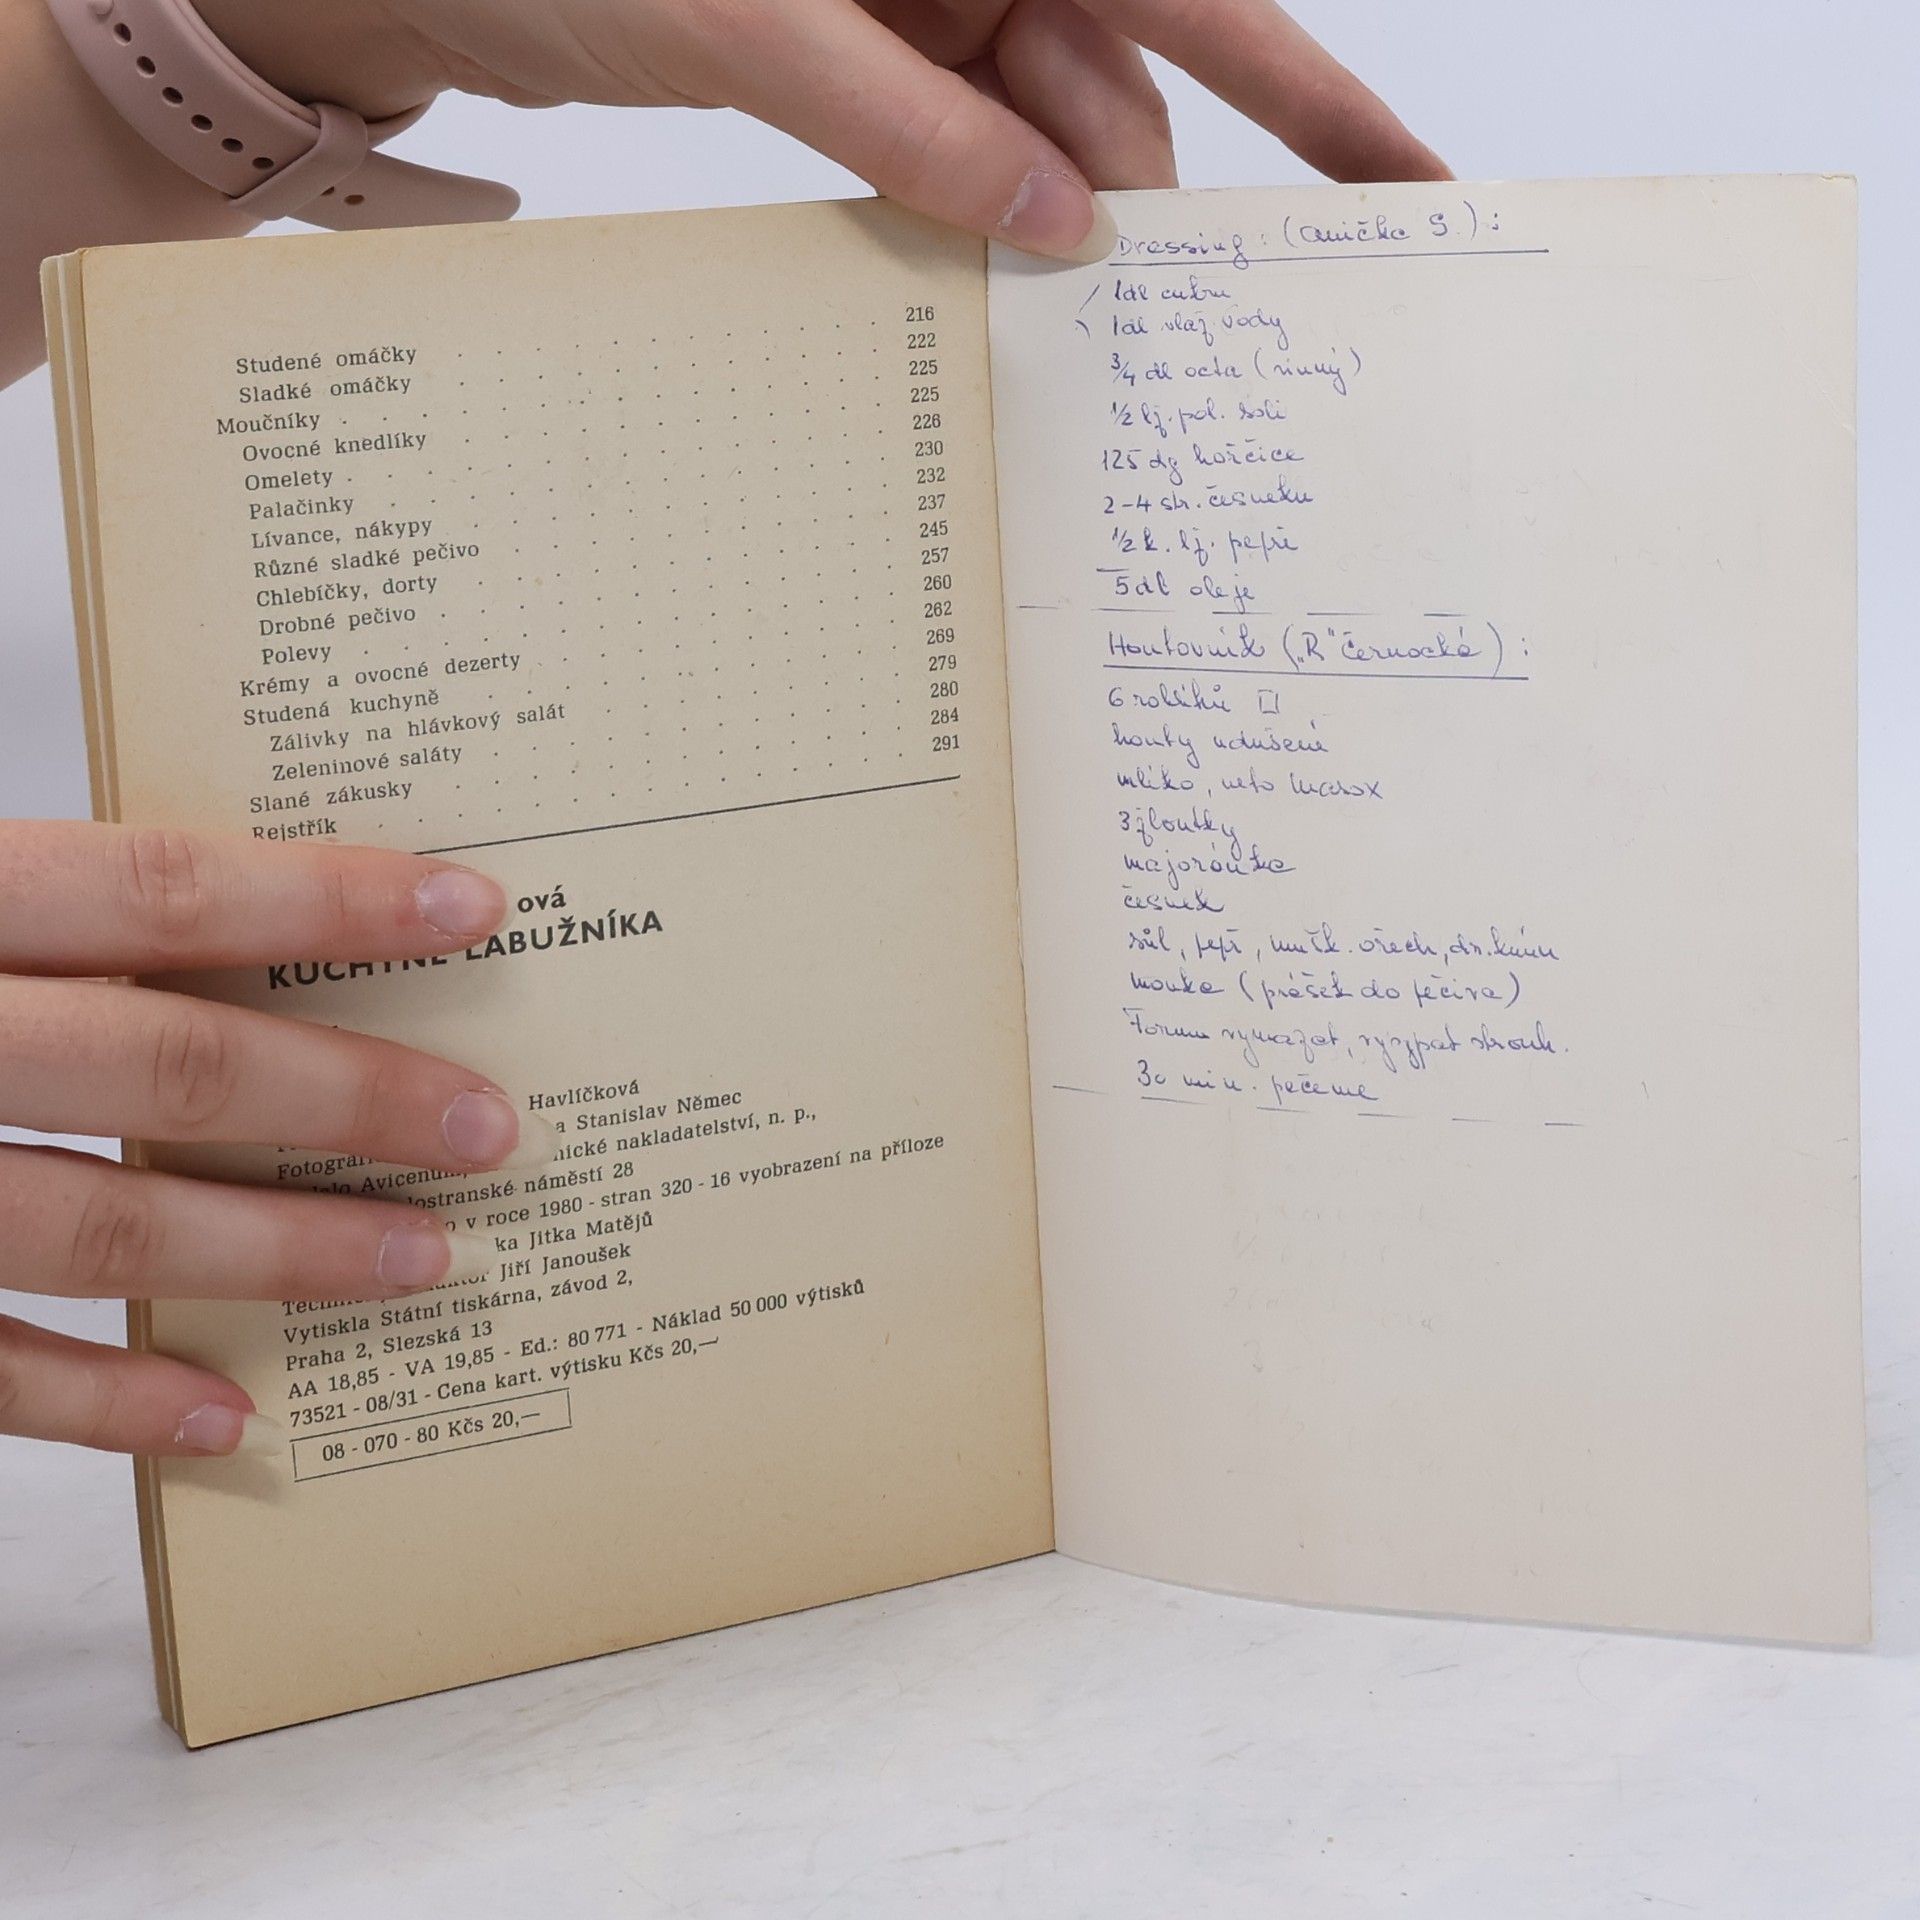 Studené omáčky . . . 216
Sladké omáčky . . . 222
Moučníky . . . 225
Ovocné knedlíky . . . 225
Omelety . . . 226
Palačinky . . . 230
Lívance, nákypy . . . 232
Různé sladké pečivo . . . 237
Chlebíčky, dorty . . . 245
Drobné pečivo . . . 257
Polevy . . . 260
Krémy a ovocné dezerty . . . 262
Studená kuchyně . . . 269
Zálivky na hlávkový salát . . . 279
Zeleninové saláty . . . 280
Slané zákusky . . . 284
Rejstřík . . . 291
ová
KUCHYNĚ LABUŽNÍKA
Havlíčková
a Stanislav Němec
nické nakladatelství, n. p.,
Avicenum,
náměstí 28
v roce 1980 - stran 320 - 16 vyobrazení na příloze
ka Jitka Matějů
Jiří Janoušek
Vytiskla Státní tiskárna, závod 2,
Praha 2, Slezská 13
AA 18,85 - VA 19,85 - Ed.: 80 771 - Náklad 50 000 výtisků
73521 - 08/31 - Cena kart. výtisku Kčs 20,—
08 - 070 - 80 Kčs 20,—
Dressing : (Anička S.) :
1dl cukru
1dl vlaž. vody
3/4 dl octa (vinný)
1/2 lž. pol. soli
125 dg hořčice
2-4 str. česneku
1/2 k. lž. pepře
5dl oleje
Houbovník („R" Černocká) :
6 rohlíků
houby udušené
mlíko, nebo masox
3 žloutky
majoránka
česnek
sůl, pepř, mušk. ořech, dr. kmín
mouka (prášek do pečiva)
Formu vymazat, vysypat strouh.
30 min. pečeme